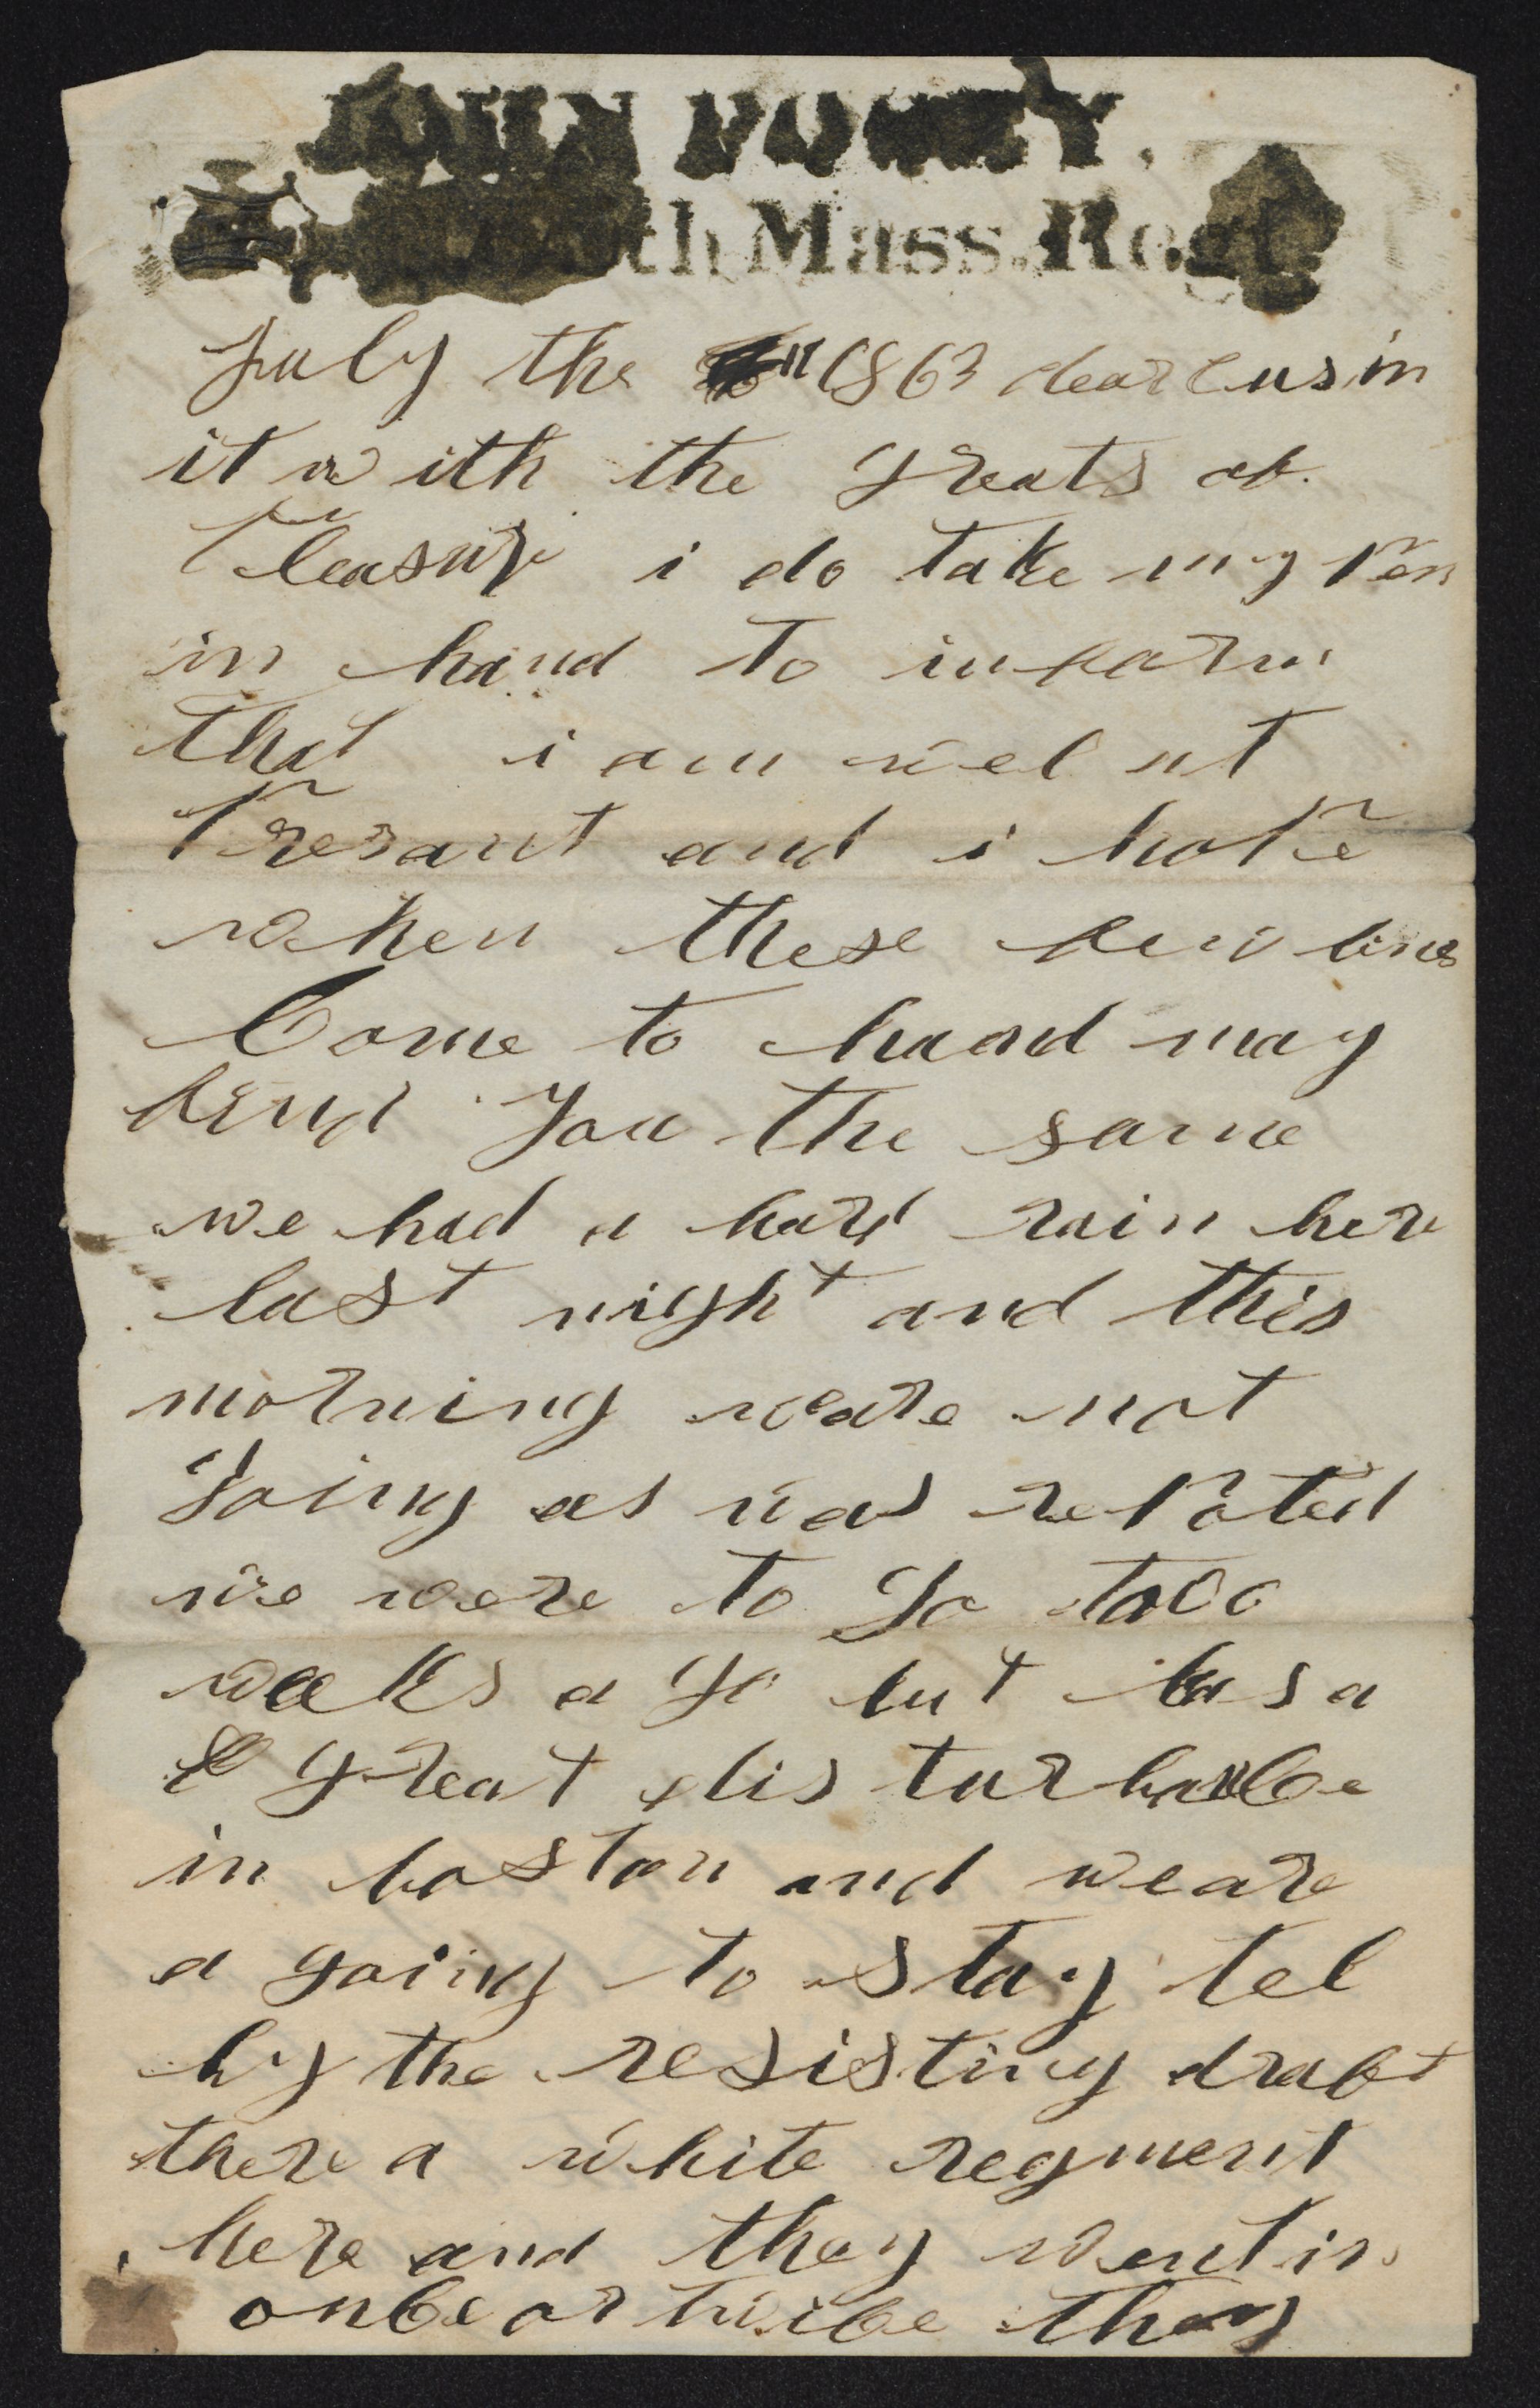 JOHN POSEY.
th Mass. Regt
July the 1863 dear cusin
it with the greats of
Pleasure i do take my Pen
in hand to infarm
that i am wel at
Presant and i hoPe
when these few lines
Come to haand may
find you the same
we had a hard rain here
last nigh t and this
morning weare not
going as was rePoted
we were to go tooo
weeks a go but has a
great dis turbance
in boston and weare
a going to stay tel
by the resisting draft
there a white regment
here and they went in
once or twice they